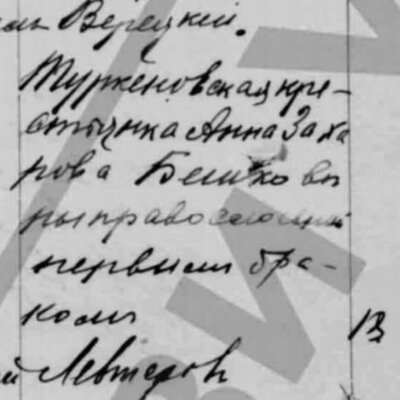 Верецкій.
Туркеновская кре-
стьянка Анна Заха
рова Бешко вѣ
ры православной
первымъ бра-
комъ
В
й Левтеровъ